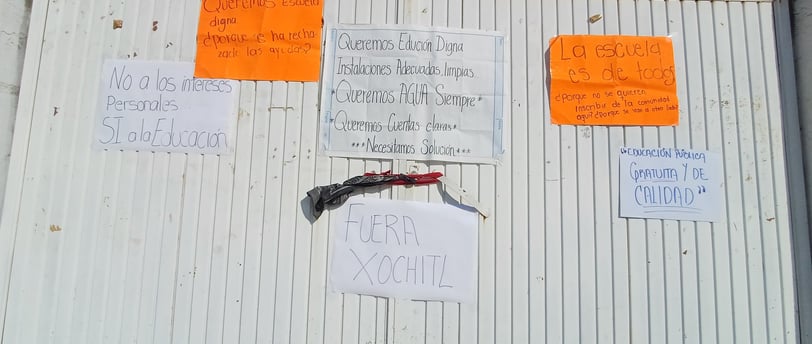 Queremos Escuela
digna
¿porque se ha recha
zado las ayudas?
No a los intereses
Personales
SI a la Educación
Queremos Edución Digna
Instalaciones Adecuadas, limpias.
*Queremos AGUA Siempre*
*Queremos Cuentas claras*
***Necesitamos Solución***
FUERA
XOCHITL
La escuela
es de todos
¿Porque no se quieren
inscribir de la comunidad
aqui? ¿porque se van al otro lado?
"EDUCACIÓN PÚBLICA
GRATUITA Y DE
CALIDAD"